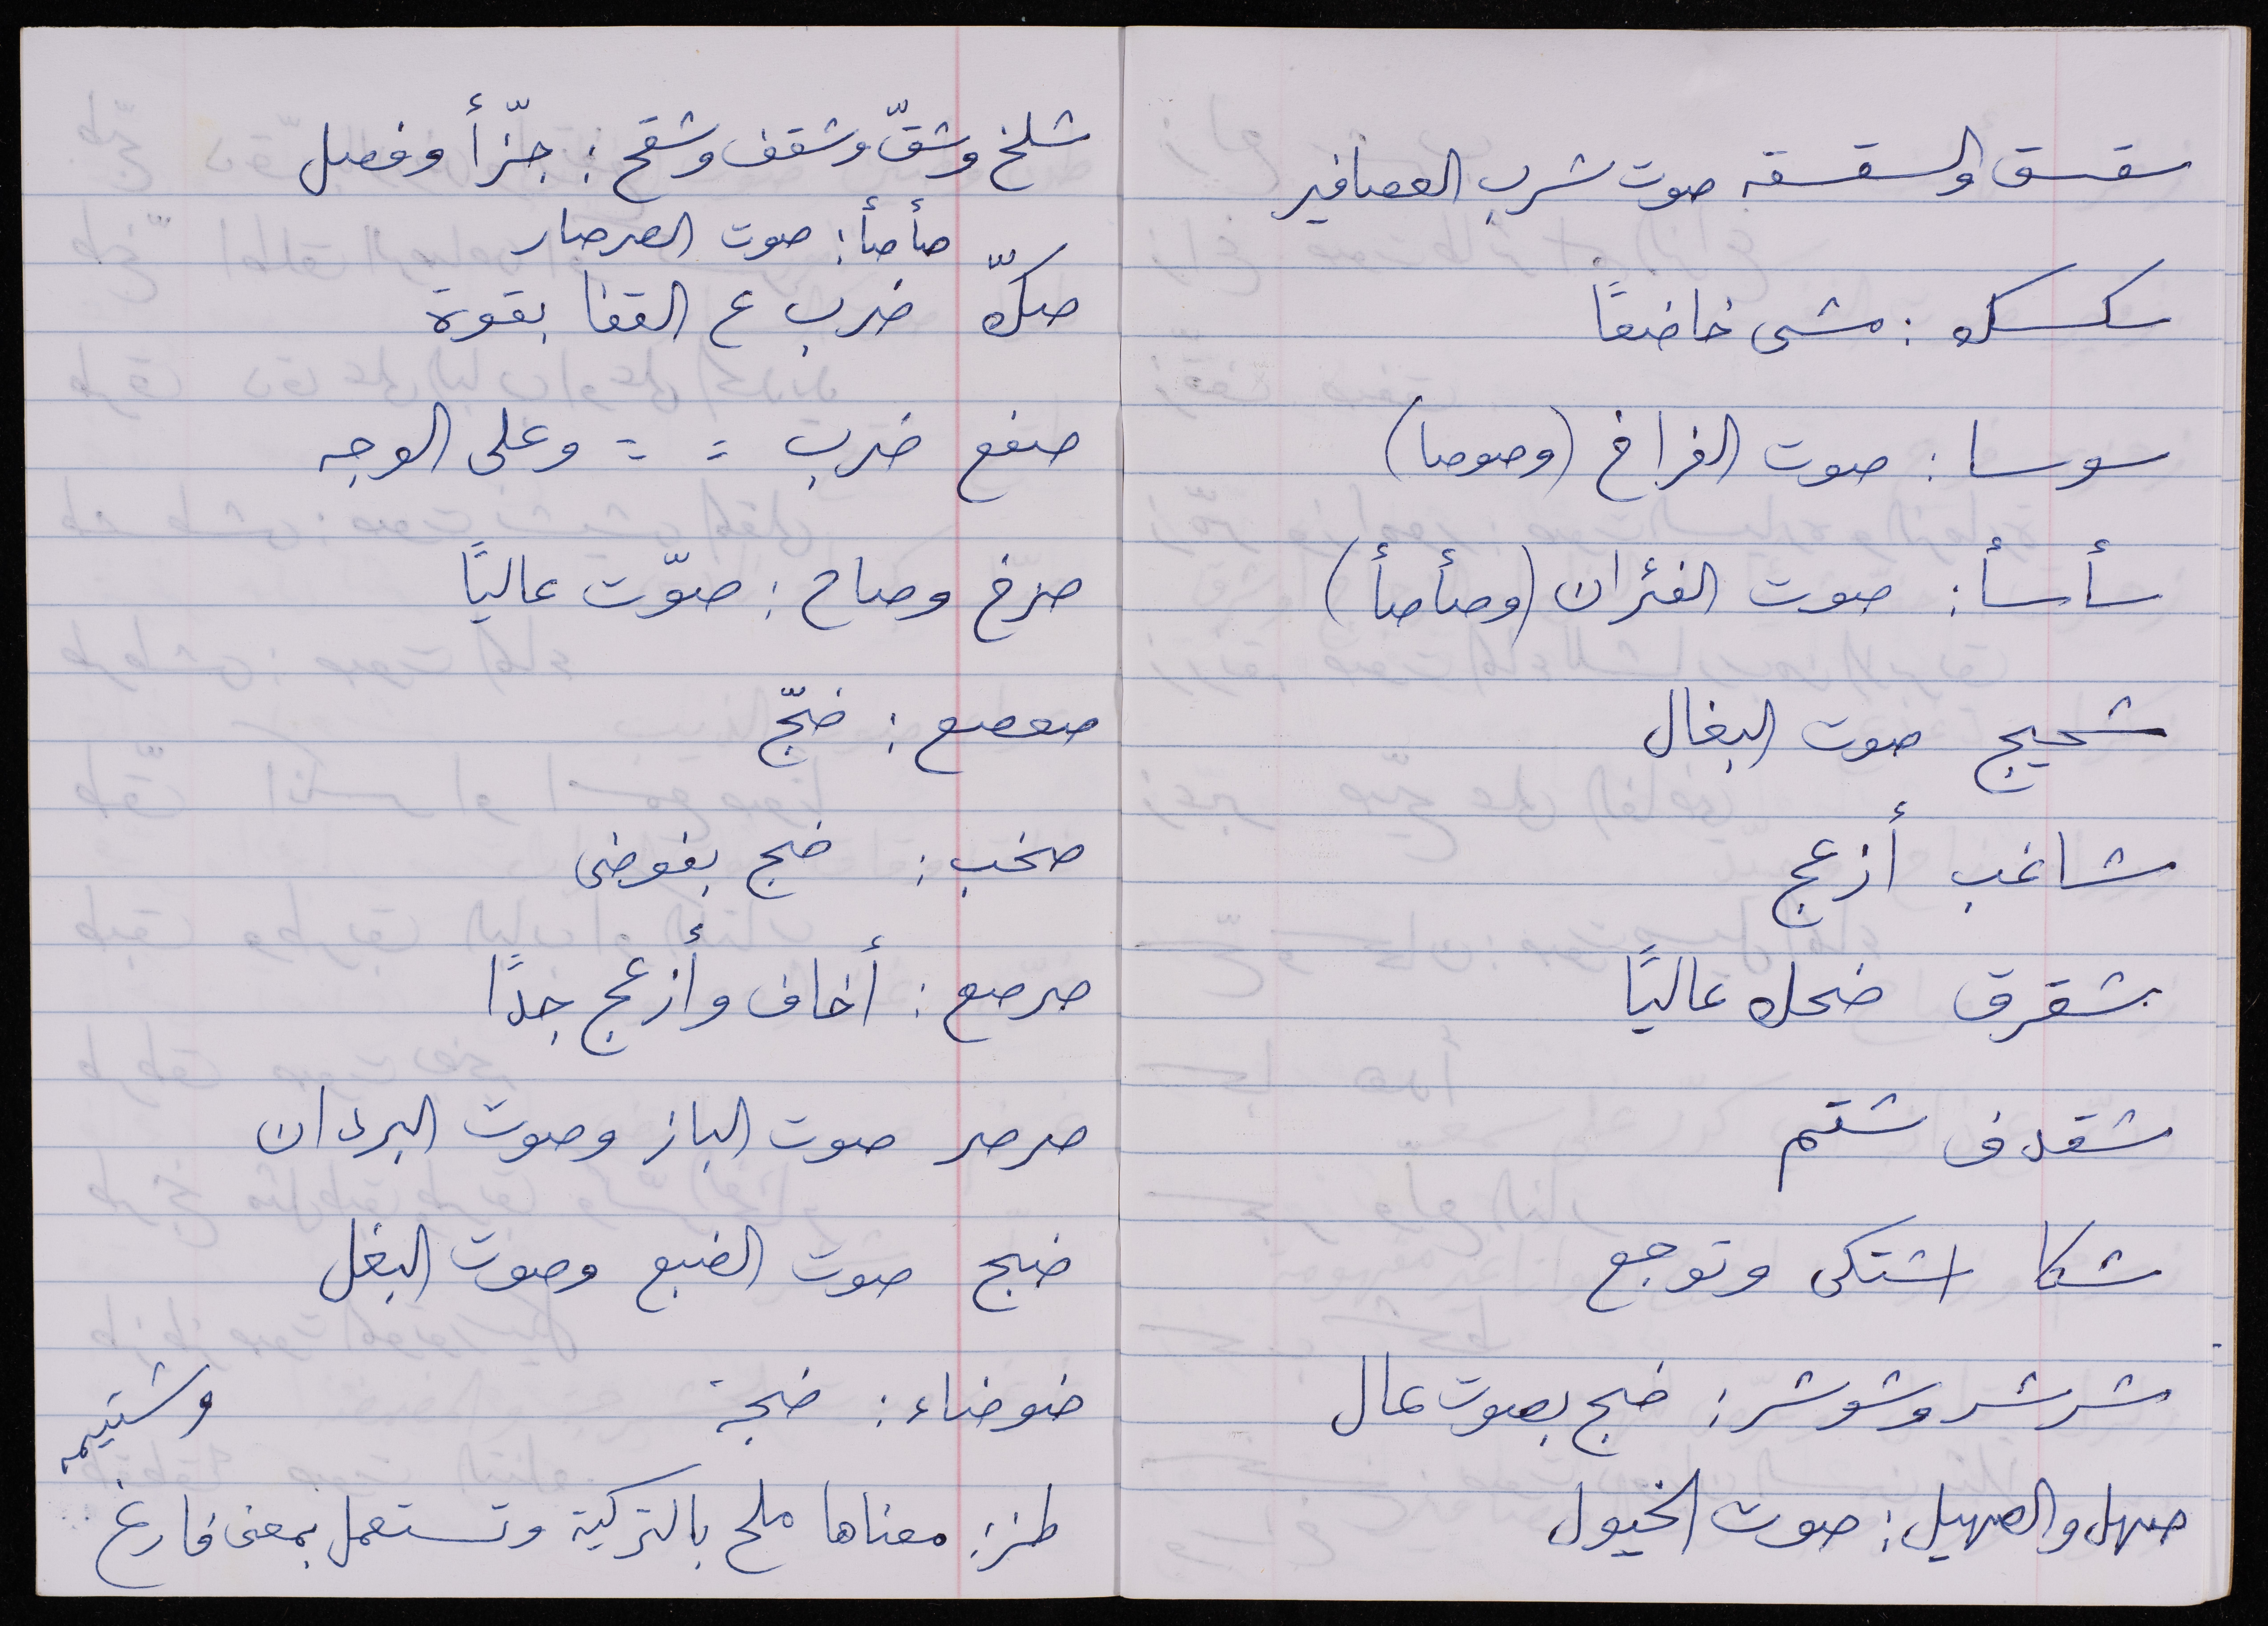 سقسق والسقسقه صوت شرب العصافير
سكسك : مشى خاضعًا
سوسا : صوت الفراخ (وصوصا)
سأسأ : صوت الفئران (وصأصأ)
شحيج صوت البغال
شاغب أزعج
شقرق ضحك عاليًا
شقدف شتم
شكا اشتكى وتوجع
شرشر وشوشر : ضج بصوت عال
صهل والصهيل : صوت الخيول
شلخ وشقّ وشقف وشقح : جزّأ وفصل
صأصأ : صوت الصرصار
صكّ ضرب ع القفا بقوة
صفع ضرب = = وعلى الوجه
صرخ وصاح : صوّت عاليًا
صعصع : ضجّ
صخب : ضج بفوضى
صرصع : أخاف وأزعج جدًا
صرصر صوت الباز وصوت البردان
ضبج صوت الضبع وصوت البغل
ضوضاء : ضجة
طز : معناها ملح بالتركية وتستعمل بمعنى فارغ
وشتيمه